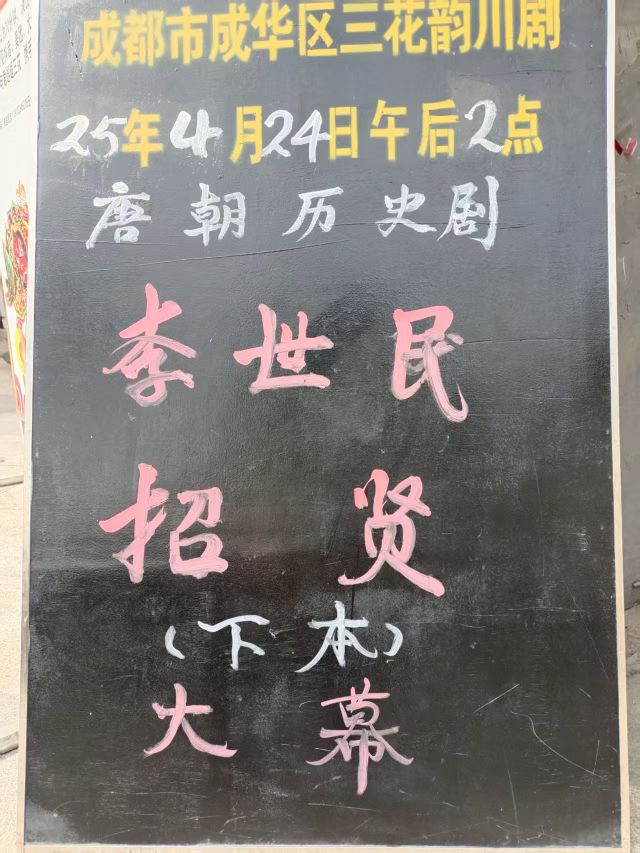 成都市成华区三花韵川剧
25年4月24日午后2点
唐朝历史剧
李世民
招贤
(下本)
大幕